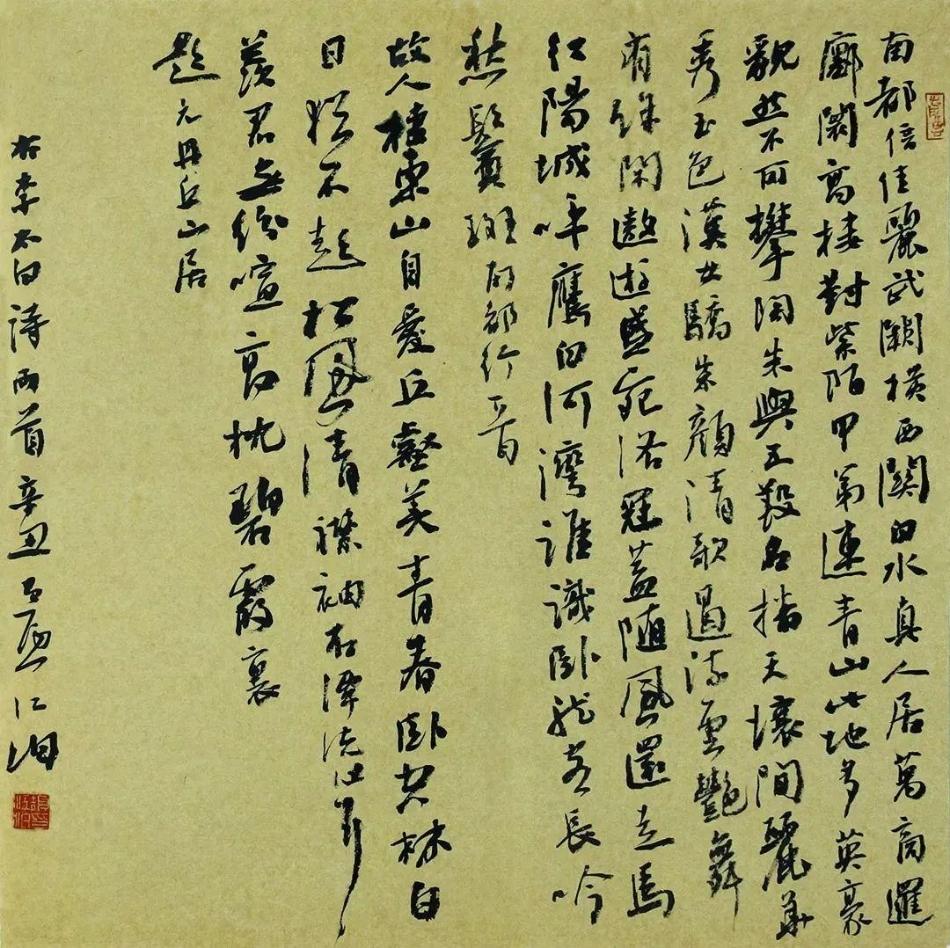 南都信佳麗武闕橫西關白水真人居萬商邏
鄽闤高樓對紫陌甲第連青山此地多英豪
邈然不可攀陶朱與五羖名播天壤間麗華
秀玉色漢女驕朱顏清歌遏流雲艷舞
有餘閑遨遊盛宛洛冠蓋隨風還走馬
紅陽城呼鷹白河灣誰識臥龍客長吟
愁鬢斑 南都行一首
故人棲東山自愛丘壑美青春臥空林白
日猶不起松風清襟袖石潭洗心耳
羨君無紛喧高枕碧霞裏
題元丹丘山居
右李太白詩兩首辛丑